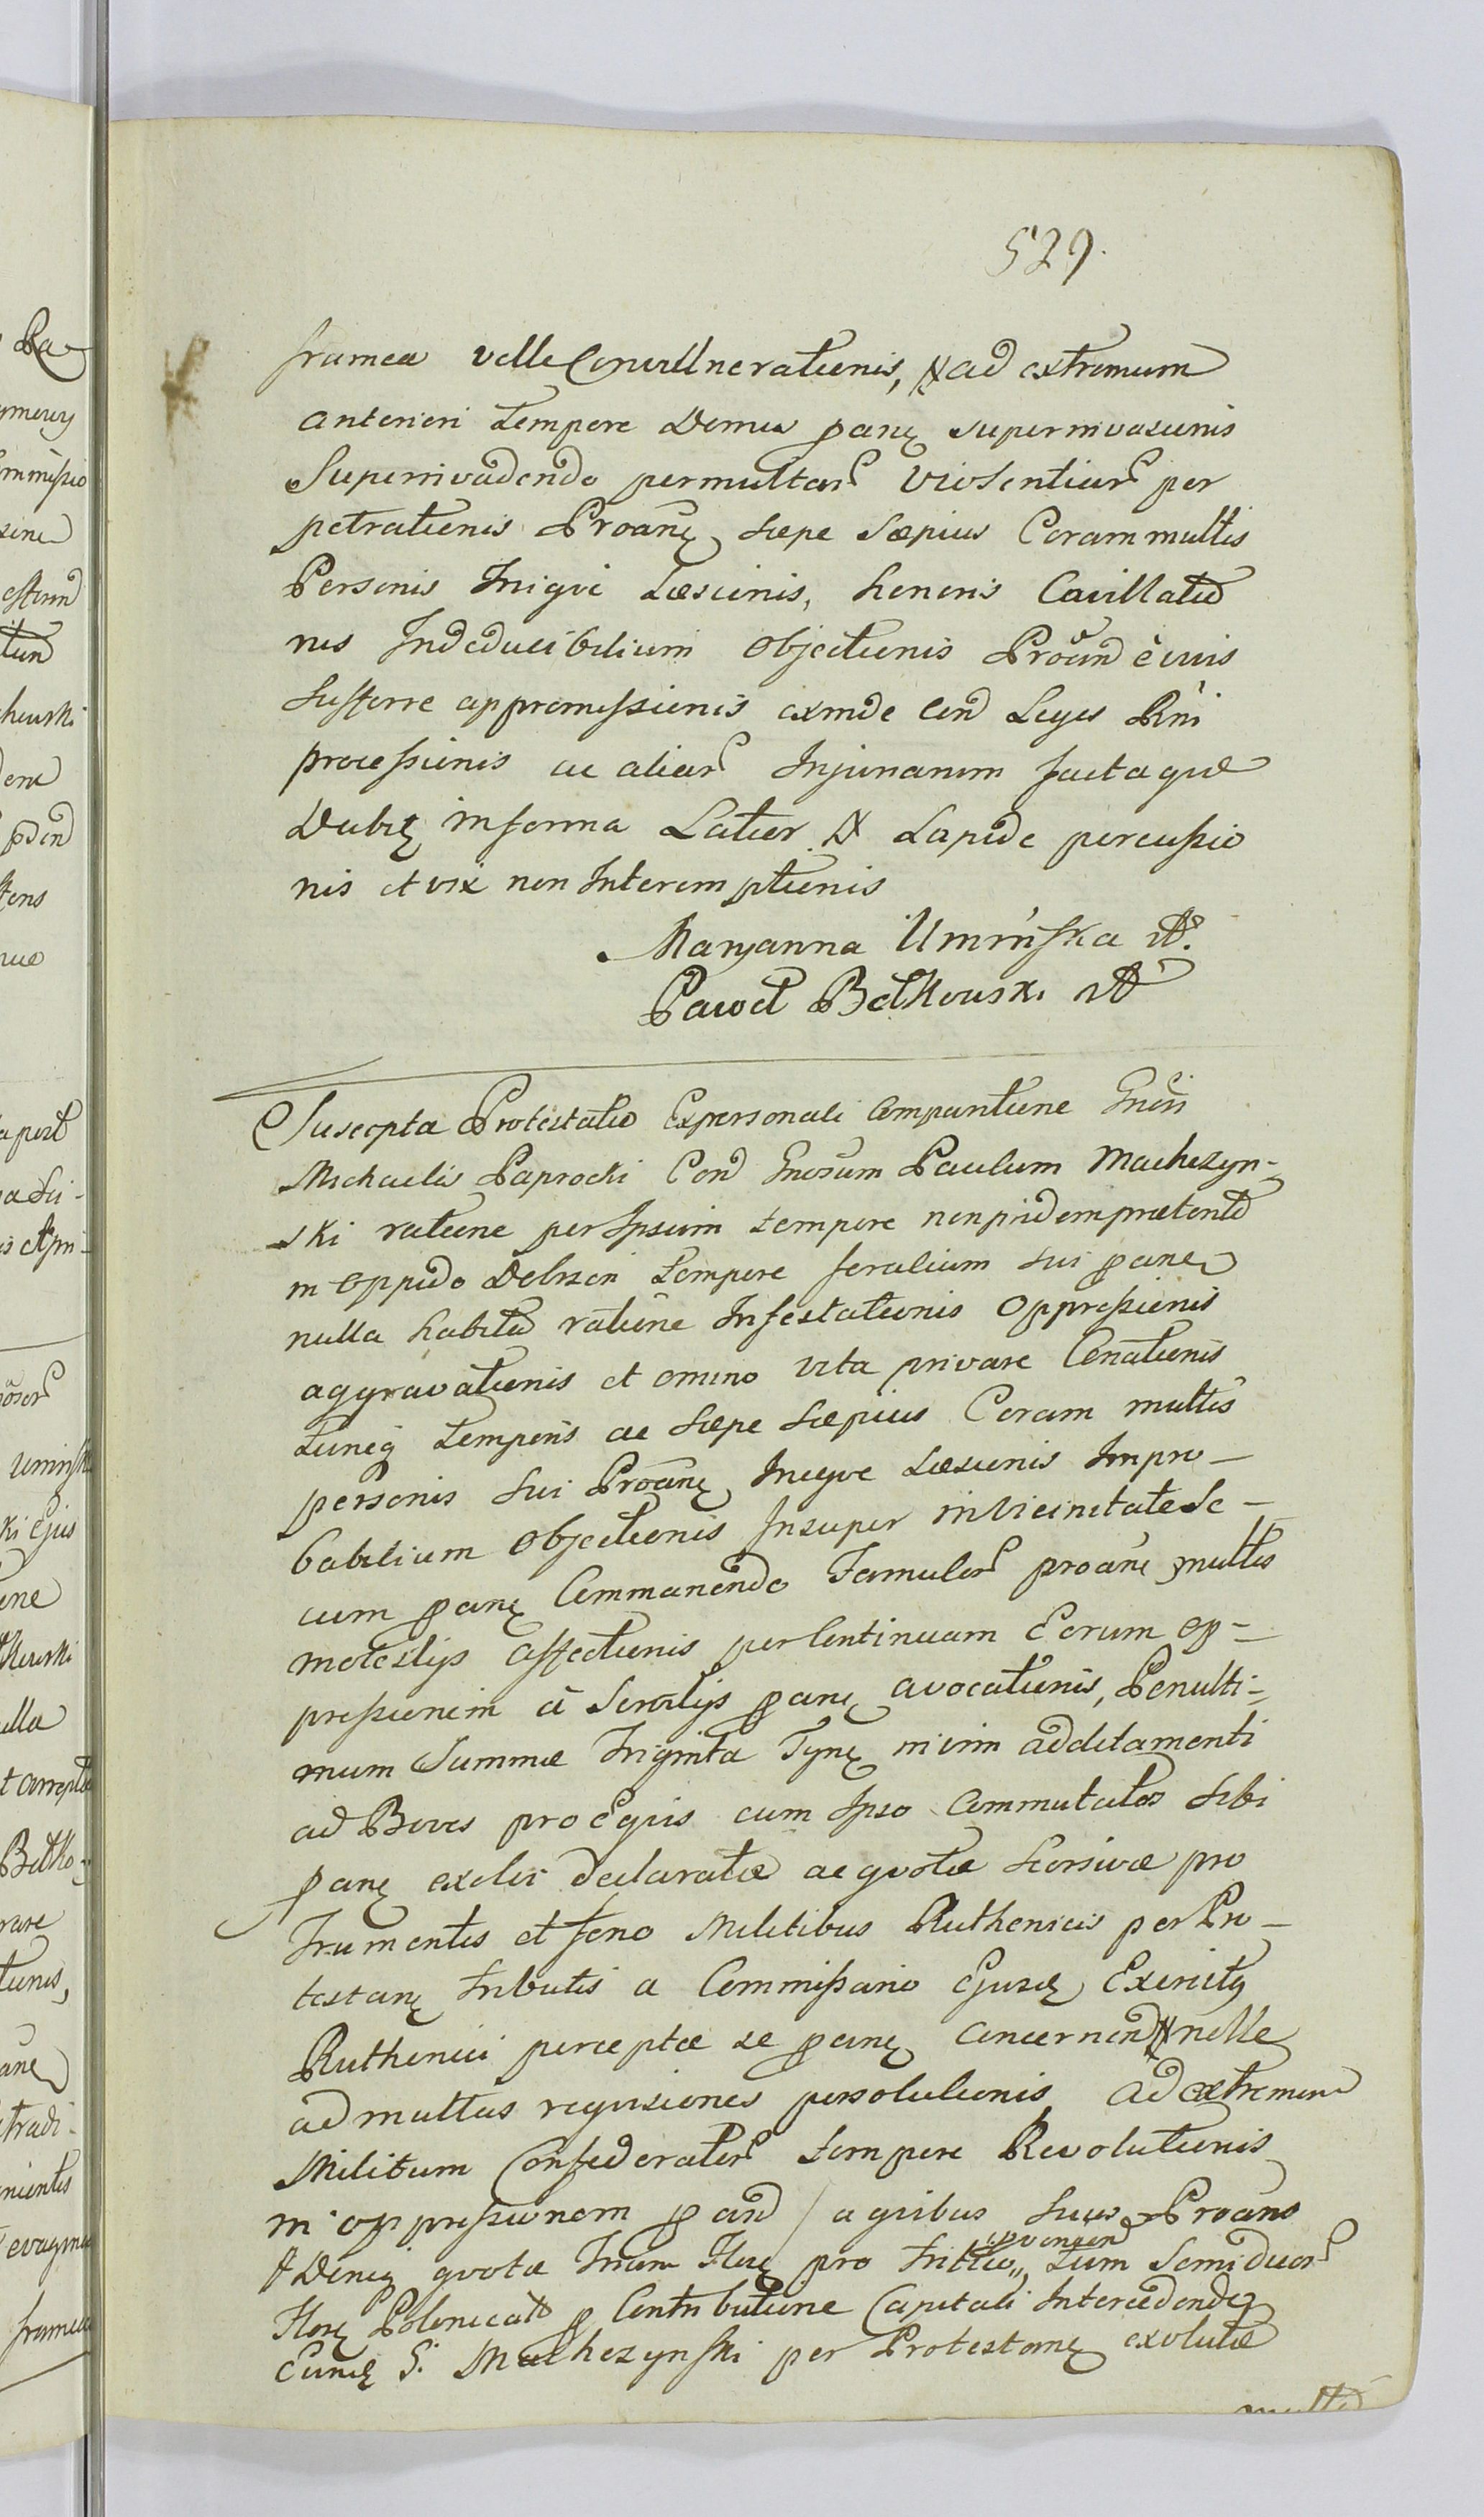 529.
framea velle Convullnerationis, & ad extremum
anteriori tempore Domus pane supernivasionis
Supernivadendo permultar Violentiar per
petrationis Proane saepe saepius Coram multis
Personis Iniqve Laesionis, honoris Cavillatio
nis Indeducibilium Objectionis Proand
sufferre appromissionis exinde Cond Leges Pni
processionis ac aliar Injuriarum factaqve
Dubie in forma Later & Lapide percussio
nis et vix non Interemptionis
Maryanna Umińska
Paweł Bełkowski
Suscepta Protestatio Ex personali Comparitione Gnosi
Michaelis Paprocki Cond Gnosum Paulum Machczyn-
ski ratione per Ipsum tempore non pridem praeterito
in oppido Debrzen tempore feralium sui pane
nulla habita ratione Infestationis Oppressionis
aggravationis et omino vita privare Conationis
Tuneq temporis ac saepe saepius Coram multis
personis sui Proane Iniqve Laesionis Impro-
babilium Objectionis Insuper in Vicinitate Se-
cum pane Commanendo Famulor proane multis
molestijs affectionis per Continuam Eorum op-
pressionem à Servitijs pane avocationis, Penulti-
mum Summae Triginta Tyne nivim additamenti
ad Boves pro Eqvis cum Ipso Commutatos sibi
pane declaratae ac qvotae seorsivae pro
Frumentis et feno Militibus Ruthenicis per Pro-
testane tributis a Commissario Ejusd Exercitq
Ruthenici perceptae se pane concernend nolle
ad multas reqvisiones persolutionis, ad extremum
Militum Confederator tempore Revolutionis
in oppressionem pand / a qvibus suus Proans
qvota Trium Flore pro tritico,, tum Semiduor
Flore Polonical p Contributione Capitali Intercedendo
Eund G. Machczynski per Protestane exolutae